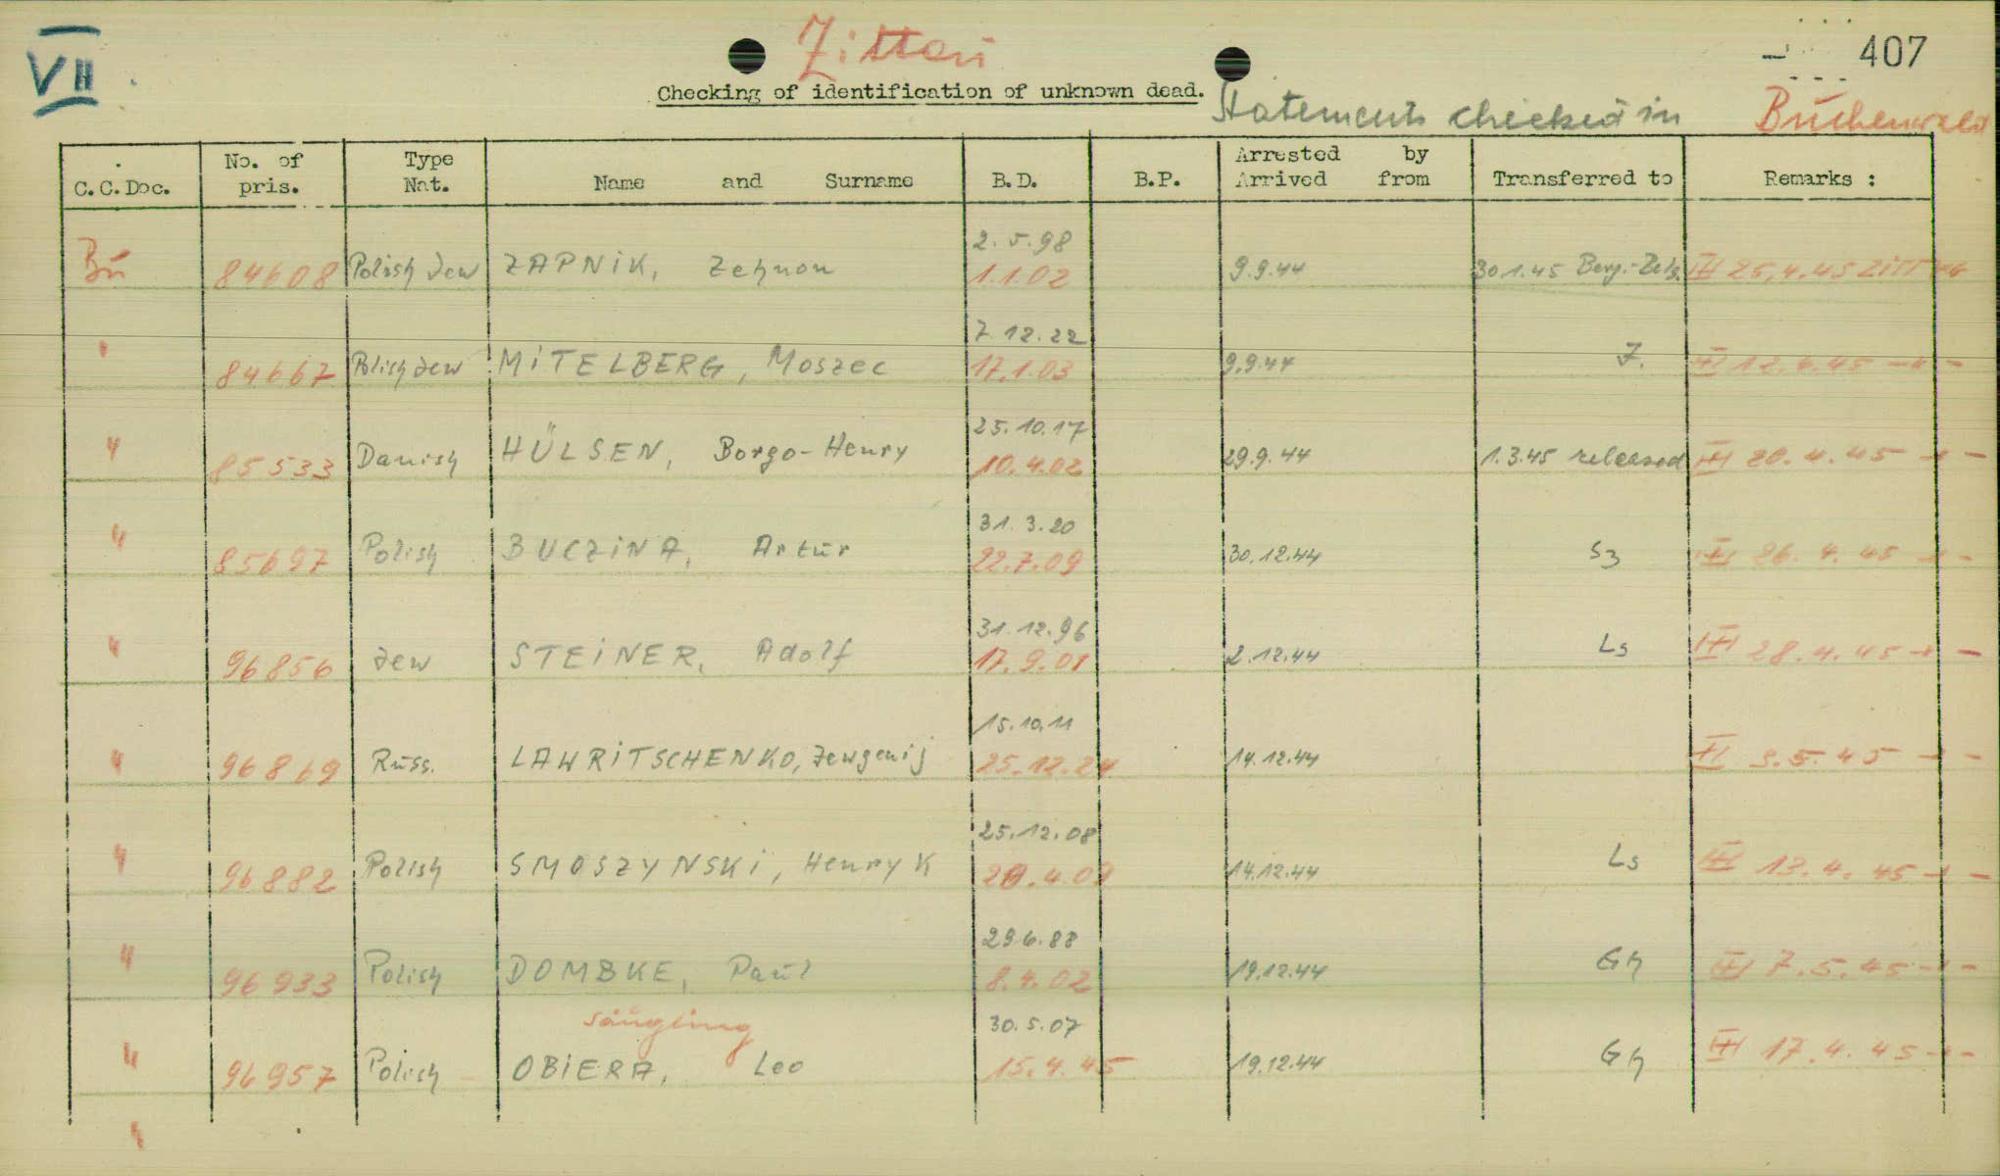 VII
Zittau
407
Checking of identification of unknown dead.
Statements checked in Buchenwald
C.C.Doc. No. of pris. Type Nat. Name and Surname B.D. B.P. Arrested by Arrived from Transferred to Remarks :
2.5.98
Bu 84608 Polish Jew ZAPNiK, Zehnon 1.1.02 9.9.44 30.1.45 III 25.4.45 Zittau
7.12.22
" 84667 Polish Jew MiTELBERG, Moszec 17.1.03 9.9.44 Z. III 12.4.45 -"-
25.10.17
" 85533 Danish HÜLSEN, Borgo-Henry 10.4.02 29.9.44 1.3.45 released III 20.4.45 -"-
31.3.20
" 85697 Polish BUCZiNA, Artur 22.7.09 30.12.44 S3 III 26.4.45 -"-
31.12.96
" 96856 Jew STEiNER, Adolf 17.9.01 2.12.44 Ls III 28.4.45 -"-
15.10.11
" 96869 Russ. LAWRiTSCHENKO, Jewgenij 25.12.24 14.12.44 5.45 -"-
25.12.08
" 96882 Polish SMOSZYNSKi, Henryk 14.12.44 Ls III 13.4.45 -"-
29.6.88
" 96933 Polish DOMBKE, Paul 8.4.02 19.12.44 Gh III 7.5.45 -"-
Säugling 30.5.07
" 96957 Polish OBiERA, Leo 15.4.45 19.12.44 Gh III 17.4.45 -"-
"